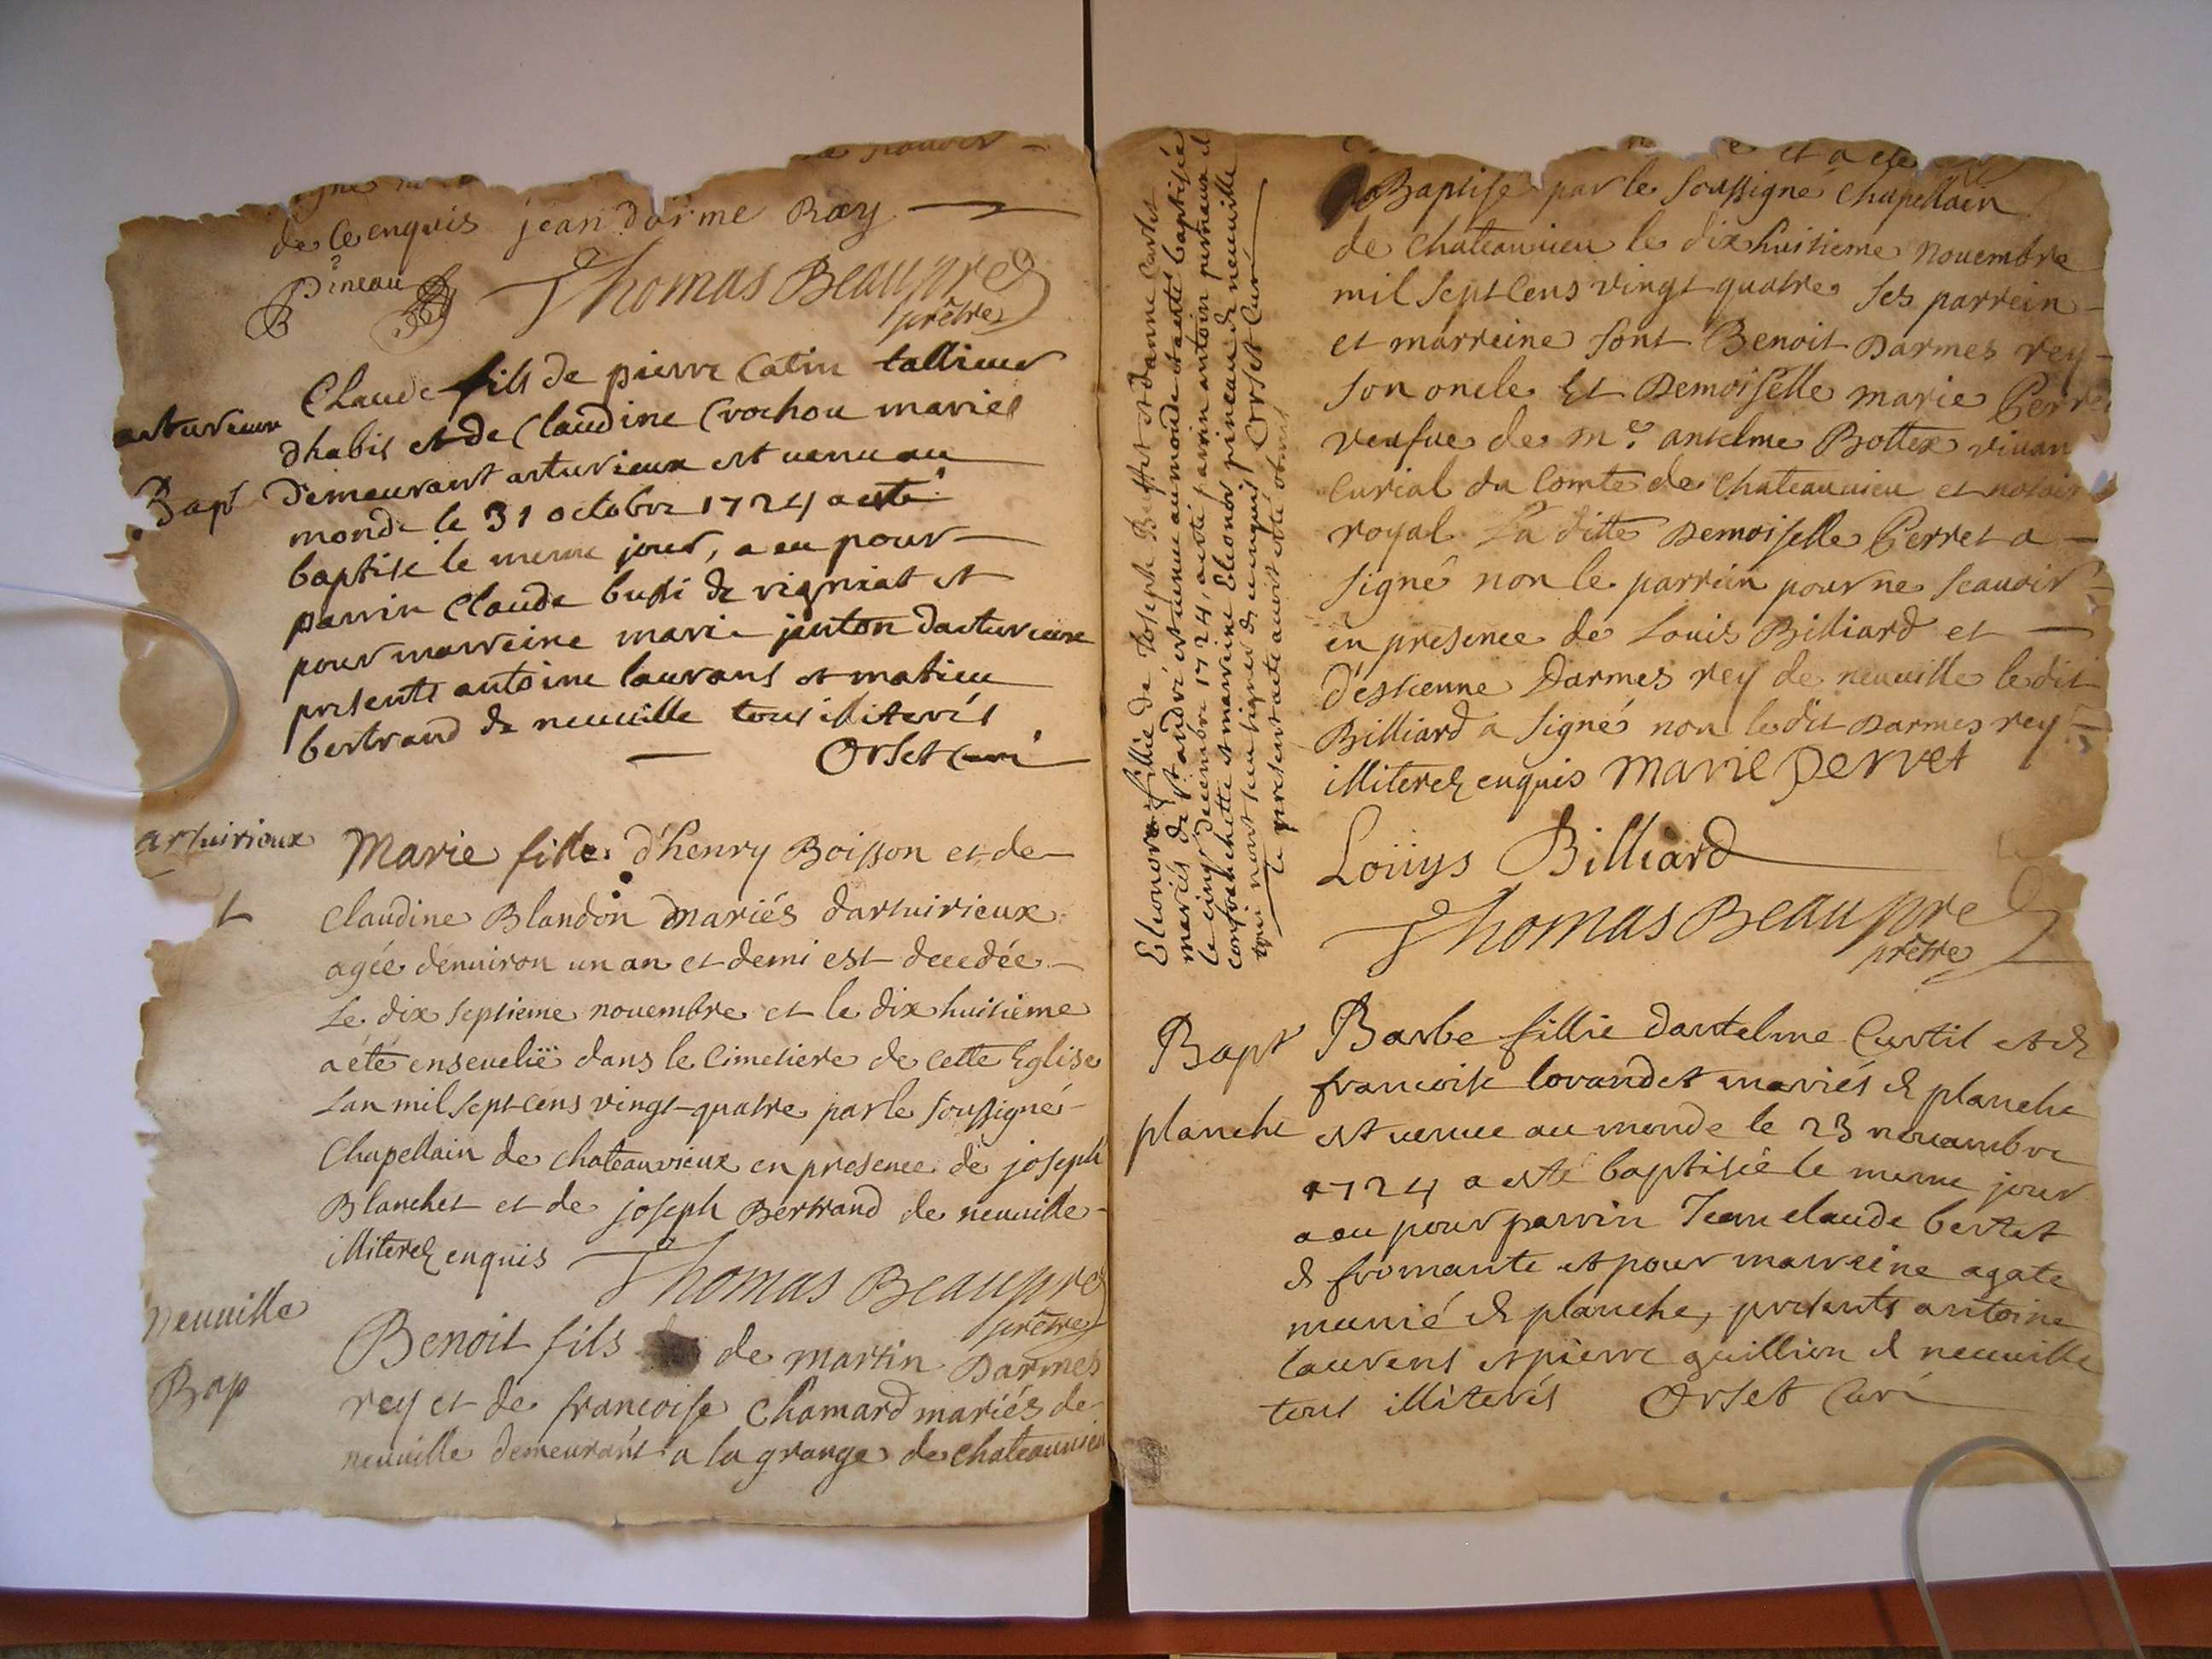 de ce enquis jean darme Rey
Pineau Thomas Beaupre
prêtre
Claude fils de pierre Catin tallieur
arturieux dhabis et de Claudine Crochou mariés
Bapt demeurant arturieux est venu au
monde le 31 octobre 1724 a esté
baptisé le meme jour, a eu pour
parrin Claude de vigniat et
pour marreine marie janton darturieux
presents antoine laurans et matieu
bertrand de neuuille tous illiterés
Orset Curé
artuirieux Marie fille d'henry Boisson et de
t Claudine Blandon Mariés dartuirieux
agée denuiron un an et demi est decedée
Le dix septieme nouembre et le dix huitieme
a été enseuelië dans le Cimetiere de cette Eglise
Lan mil sept cens vingt-quatre par le soussigné
Chapellain de chateauvieux en presence de joseph
Blanchet et de joseph Bertrand de neuuille
illiterez enquis Thomas Beaupre
prêtre
neuuille
Benoit fils de martin Darmes
Bap rey et de francoise Chamard mariés de
neuuille demeurant a la grange de chateauuieu
Elionore fillie de Joseph Buffet et danne Curtet
mariés de st andré est uenue au monde et a esté baptisée
le cinq decembre 1724, a esté parrin antoin perneaux d
confranchette et marreine Elionor pineau de neuuille
qui nont sceu signer de ce enquis Orset Curé
le present acte auoit esté obmis
et a ete
Baptisé par le soussigné Chapellain
de chateauuieu le dix huitieme nouembre
mil sept cens vingt quatre ses parrein
et marreine sont Benoit Darmes rey
son oncle Et Demoiselle marie Perret
veufue de me. antelme Bottex viuan
curial du Comte de chateauuieu et notair
royal La ditte Demoiselle Perret a
signé non le parrein pour ne scauoir
en presence de Louis Billiard et
d'estienne Darmes rey de neuuille le dit
Billiard a signé non le dit Darmes rey
illiterez enquis Marie Perret
Loüys Billiard
Thomas Beaupre
prêtre
Bapt Barbe fillie dantelme Curtil et de
francoise lorandet mariés de planche
planche est uenue au monde le 23 nouambre
1724 a esté baptisée le meme jour
a eu pour parrin Jean claude bertet
de fromante et pour marreine agate
munié de planche, presents antoine
laurens et pierre guillion de neuuille
tous illiterés Orset Curé